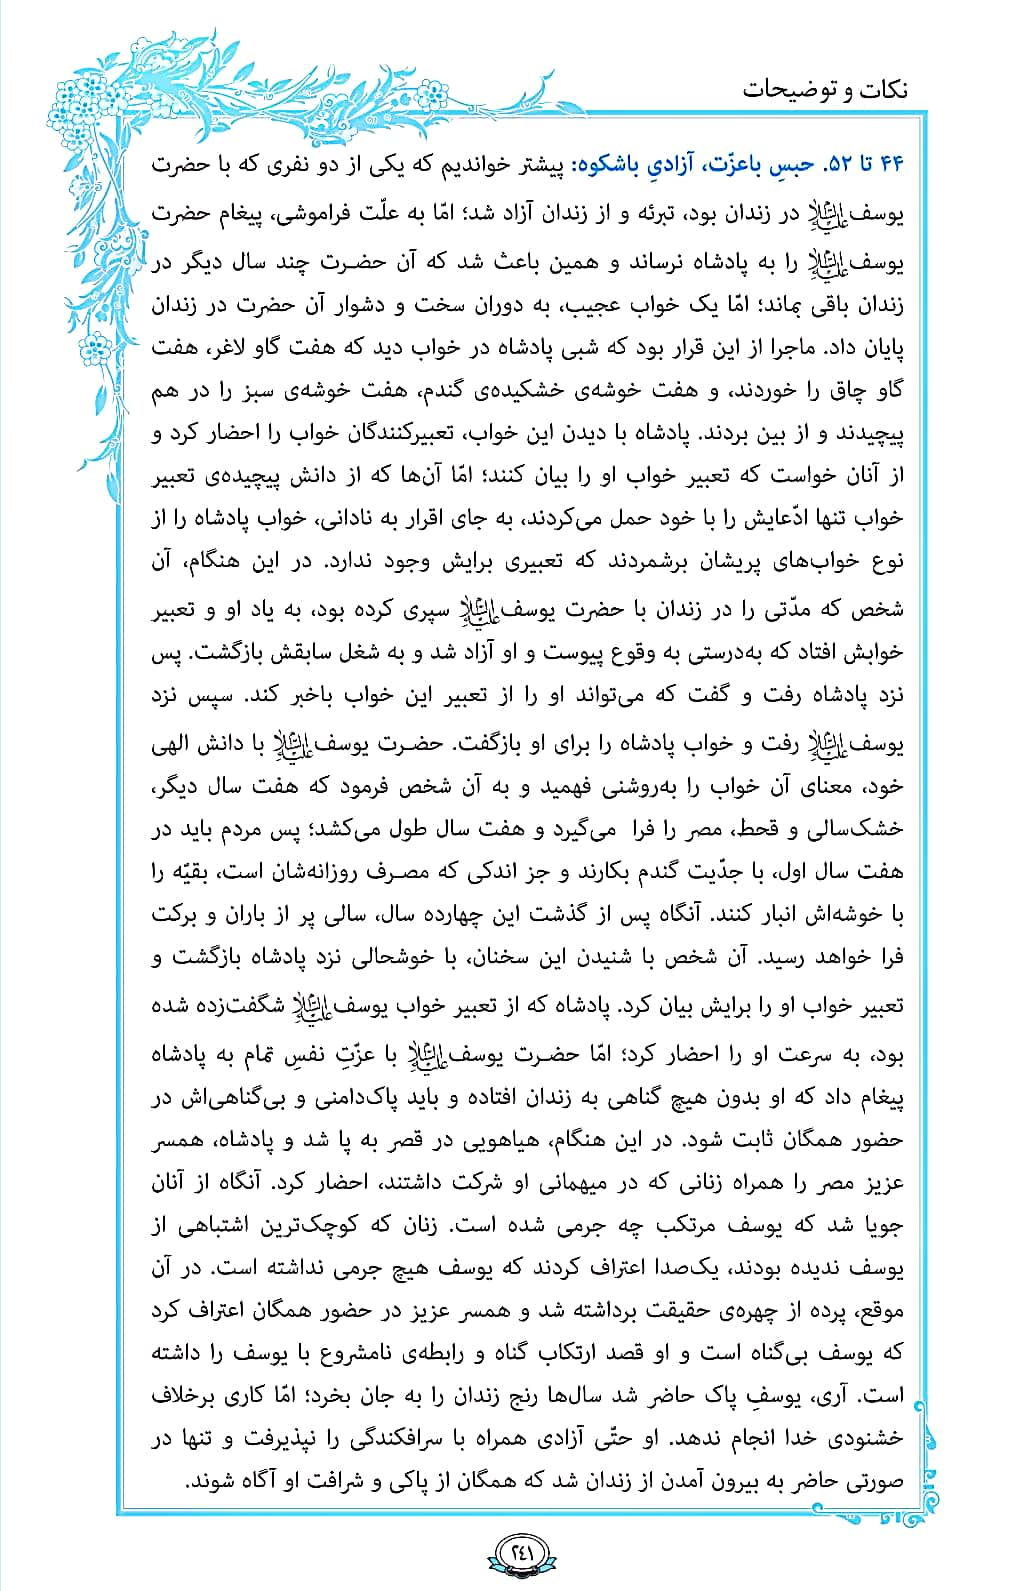 نکات و توضیحات
۴۴ تا ۵۲. حبسِ باعزّت، آزادیِ باشکوه: پیشتر خواندیم که یکی از دو نفری که با حضرت
یوسف علیه‌السلام در زندان بود، تبرئه و از زندان آزاد شد؛ امّا به علّت فراموشی، پیغام حضرت
یوسف علیه‌السلام را به پادشاه نرساند و همین باعث شد که آن حضرت چند سال دیگر در
زندان باقی بماند؛ امّا یک خواب عجیب، به دوران سخت و دشوار آن حضرت در زندان
پایان داد. ماجرا از این قرار بود که شبی پادشاه در خواب دید که هفت گاو لاغر، هفت
گاو چاق را خوردند، و هفت خوشه‌ی خشکیده‌ی گندم، هفت خوشه‌ی سبز را در هم
پیچیدند و از بین بردند. پادشاه با دیدن این خواب، تعبیرکنندگان خواب را احضار کرد و
از آنان خواست که تعبیر خواب او را بیان کنند؛ امّا آن‌ها که از دانش پیچیده‌ی تعبیر
خواب تنها ادّعایش را با خود حمل می‌کردند، به جای اقرار به نادانی، خواب پادشاه را از
نوع خواب‌های پریشان برشمردند که تعبیری برایش وجود ندارد. در این هنگام، آن
شخص که مدّتی را در زندان با حضرت یوسف علیه‌السلام سپری کرده بود، به یاد او و تعبیر
خوابش افتاد که به‌درستی به وقوع پیوست و او آزاد شد و به شغل سابقش بازگشت. پس
نزد پادشاه رفت و گفت که می‌تواند او را از تعبیر این خواب باخبر کند. سپس نزد
یوسف علیه‌السلام رفت و خواب پادشاه را برای او بازگفت. حضرت یوسف علیه‌السلام با دانش الهی
خود، معنای آن خواب را به‌روشنی فهمید و به آن شخص فرمود که هفت سال دیگر،
خشک‌سالی و قحط، مصر را فرا می‌گیرد و هفت سال طول می‌کشد؛ پس مردم باید در
هفت سال اول، با جدّیت گندم بکارند و جز اندکی که مصرف روزانه‌شان است، بقیّه را
با خوشه‌اش انبار کنند. آنگاه پس از گذشت این چهارده سال، سالی پر از باران و برکت
فرا خواهد رسید. آن شخص با شنیدن این سخنان، با خوشحالی نزد پادشاه بازگشت و
تعبیر خواب او را برایش بیان کرد. پادشاه که از تعبیر خواب یوسف علیه‌السلام شگفت‌زده شده
بود، به سرعت او را احضار کرد؛ امّا حضرت یوسف علیه‌السلام با عزّتِ نفسِ تمام به پادشاه
پیغام داد که او بدون هیچ گناهی به زندان افتاده و باید پاک‌دامنی و بی‌گناهی‌اش در
حضور همگان ثابت شود. در این هنگام، هیاهویی در قصر به پا شد و پادشاه، همسر
عزیز مصر را همراه زنانی که در میهمانی او شرکت داشتند، احضار کرد. آنگاه از آنان
جویا شد که یوسف مرتکب چه جرمی شده است. زنان که کوچک‌ترین اشتباهی از
یوسف ندیده بودند، یک‌صدا اعتراف کردند که یوسف هیچ جرمی نداشته است. در آن
موقع، پرده از چهره‌ی حقیقت برداشته شد و همسر عزیز در حضور همگان اعتراف کرد
که یوسف بی‌گناه است و او قصد ارتکاب گناه و رابطه‌ی نامشروع با یوسف را داشته
است. آری، یوسفِ پاک حاضر شد سال‌ها رنج زندان را به جان بخرد؛ امّا کاری برخلاف
خشنودی خدا انجام ندهد. او حتّی آزادی همراه با سرافکندگی را نپذیرفت و تنها در
صورتی حاضر به بیرون آمدن از زندان شد که همگان از پاکی و شرافت او آگاه شوند.
۲۴۱